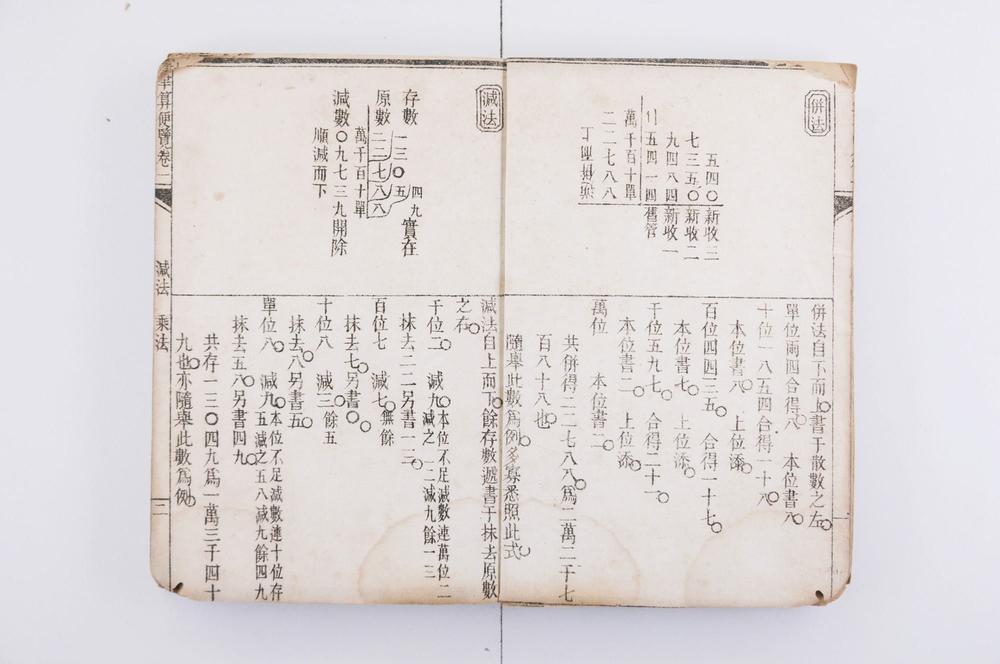 併法
五四〇新收三
七三五〇新收二
九四八四新收一
五四一四舊管
萬千百十單
二二七八八
併法自下而上書于散數之左
單位兩四合得八　本位書八
十位一八五四合得一十八
本位書八　上位添
百位四四三五　合得一十七
本位書七　上位添
千位五九七　合得二十一
本位書二　上位添
萬位　本位書二
共併得二二七八八爲二萬二千七
百八十八也
隨舉此數爲例多寡悉照此式
減法
存數　一三〇五四九實在
原數　二二七八八
萬千百十單
減數〇九七三九開除
順減而下
減法自上而下餘存數遞書于抹去原數
之右
千位二　減九本位不足減數連萬位二減之一二減九餘一三
抹去二二另書一三
百位七　減七無餘
抹去七另書〇
十位八　減三餘五
抹去八另書五
單位八　減九本位不足減數連十位存五減之五八減九餘四九
抹去五八另書四九
共存一三〇四九爲一萬三千四十
九也亦隨舉此數爲例
筆算便覽卷二
減法　乘法
三